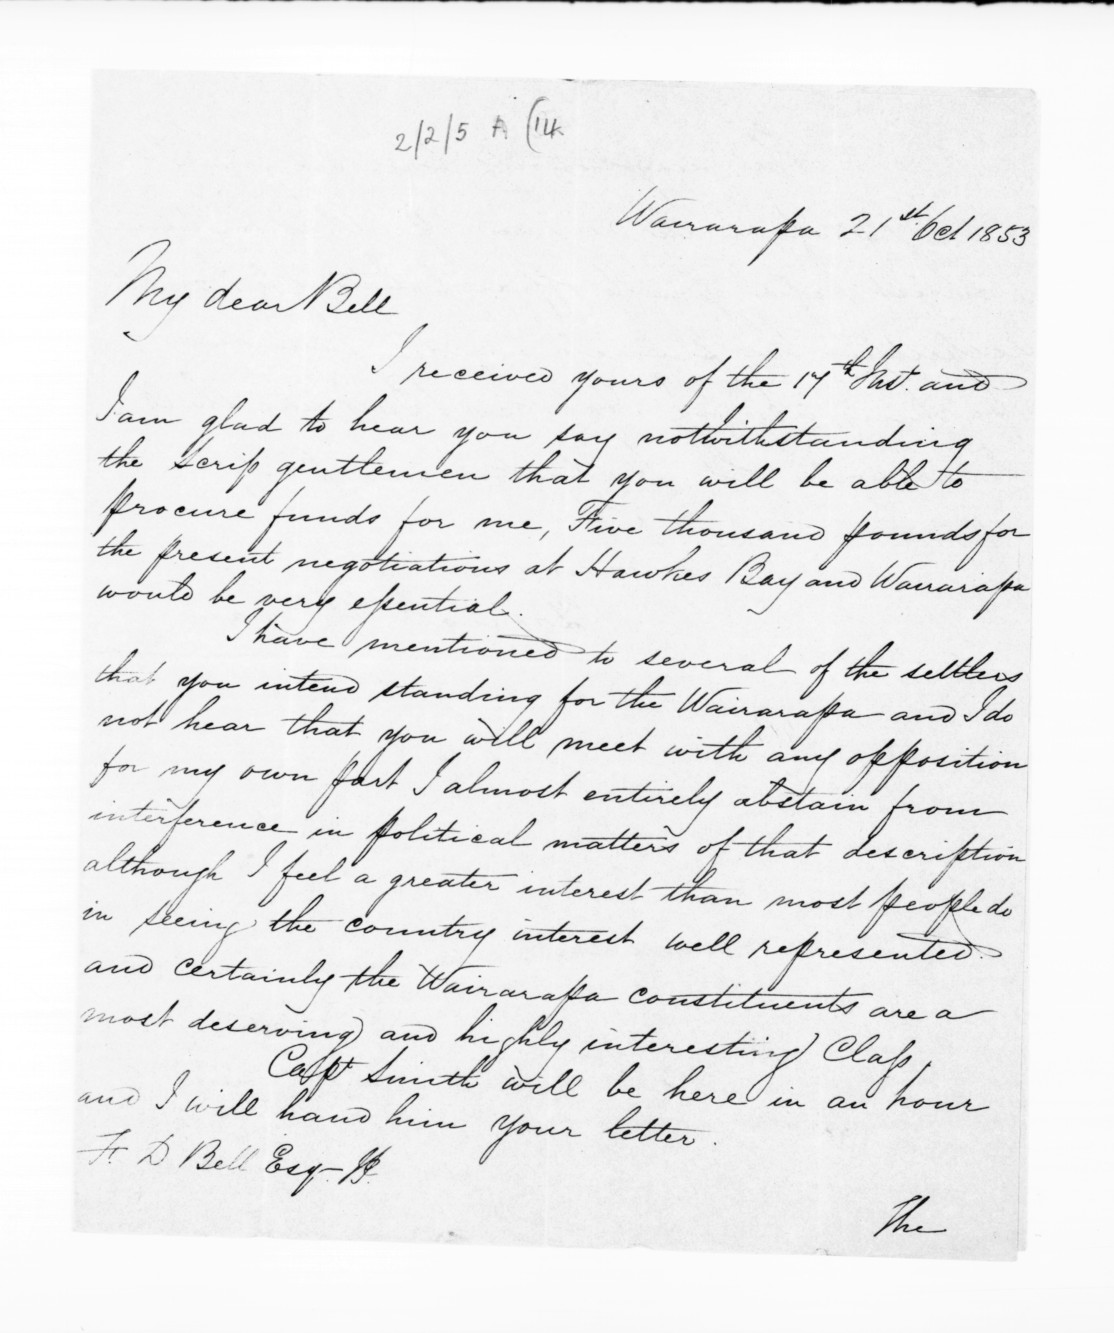 2/2/5 A (14
Wairarapa 21st Oct 1853
My dear Bell
I received yours of the 17th Inst. and
I am glad to hear you say notwithstanding
the scrip gentlemen that you will be able to
procure funds for me, Five thousand pounds for
the present negotiations at Hawkes Bay and Wairarapa
would be very essential.
I have mentioned to several of the settlers
that you intend standing for the Wairarapa and I do
not hear that you will meet with any opposition
for my own part I almost entirely abstain from
interference in political matters of that description
although I feel a greater interest than most people do
in seeing the country interest well represented
and certainly the Wairarapa constituents are a
most deserving and highly interesting Class,
Capt Smith will be here in an hour
and I will hand him your letter.
F. D Bell Esq- JP.
The